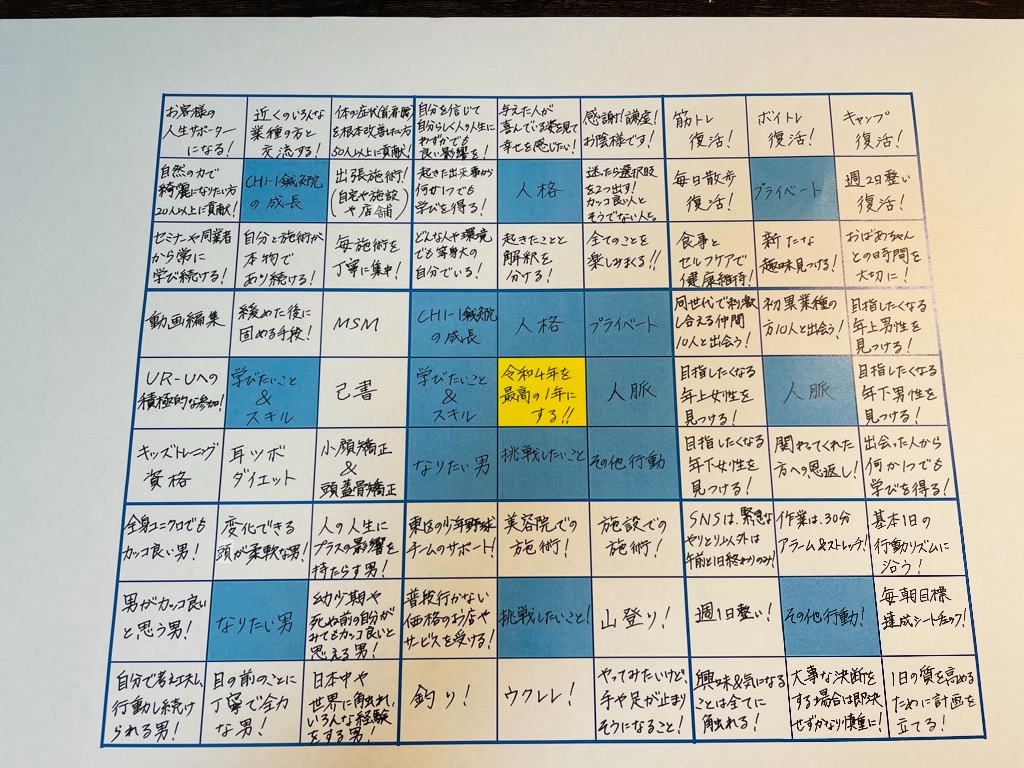 お客様の
人生サポーター
になる!
近くのいろんな
業種の方と
交流する!
体の症状(首肩腰)
を根本改善した方
50人以上に貢献!
自分を信じて
自分らしく人の人生に
わずかでも
良い影響を!
与えた人が
喜んでいる姿を見て
幸せを感じたい!
感謝!謙虚!
お陰様です!
筋トレ
復活!
ボイトレ
復活!
キャンプ
復活!
自然の力で
綺麗になりたい方
20人以上に貢献!
CHI-1鍼灸院
の成長
出張施術!
(自宅や施設
や店舗)
起きた出来事から
何か1つでも
学びを得る!
人格
迷たら選択肢
を2つ出す!
カッコ良い人と
そうでない人と。
毎日散歩
復活!
プライベート
週2日整い
復活!
セミナーや同業者
から常に
学び続ける!
自分と施術が
本物で
あり続ける!
毎施術を
丁寧に集中!
どんな人や環境
でも等身大の
自分でいる!
起きたことと
解釈を
分ける!
全てのことを
楽しみまくる!!
食事と
セルフケアで
健康維持!
新たな
趣味見つける!
おばあちゃん
との時間を
大切に!
動画編集
緩めた後に
固める手技!
MSM
CHI-1鍼灸院
の成長
人格
プライベート
同世代で刺激
し合える仲間
10人と出会う!
初異業種の
方10人と出会う!
目指したくなる
年上男性を
見つける!
UR-Uへの
積極的な参加!
学びたいこと
&
スキル
己書
学びたいこと
&
スキル
令和4年を
最高の1年に
する!!
人脈
目指したくなる
年上女性を
見つける!
人脈
目指したくなる
年下男性を
見つける!
キッズトレーニング
資格
耳ツボ
ダイエット
小顔矯正
&
頭蓋骨矯正
なりたい男
挑戦したいこと
その他行動
目指したくなる
年下女性を
見つける!
関わてくれた
方への恩返し!
出会った人から
何か1つでも
学びを得る!
全身ユニクロでも
カッコ良い男!
変化できる
頭が柔軟な男!
人の人生に
プラスの影響を
持たらす男!
東区の少年野球
チームのサポート!
美容院での
施術!
施設での
施術!
SNSは、緊急な
やりとり以外は
午前と1日終わりのみ!
作業は、30分
アラーム&ストレッチ!
基本1日の
行動リズムに
沿う!
男がカッコ良い
と思う男!
なりたい男
幼少期や
死ぬ前の自分が
みてもカッコ良いと
思える男!
普段行かない
価格のお店や
サービスを受ける!
挑戦したいこと!
山登り!
週1日整い!
その他行動!
毎朝目標
達成シート
自分で考え工夫し
行動し続け
られる男!
目の前のことに
丁寧で全力
な男!
日本中や
世界に角虫れ、
いろんな経験
をする男!
釣り!
ウクレレ!
やってみたいけど、
手や足が止まり
そうになること!
興味&気になる
ことは全てに
角虫れる!
大事な決断を
する場合は即決
せずかなり慎重に!
1日の質を高める
ために計画を
立てる!